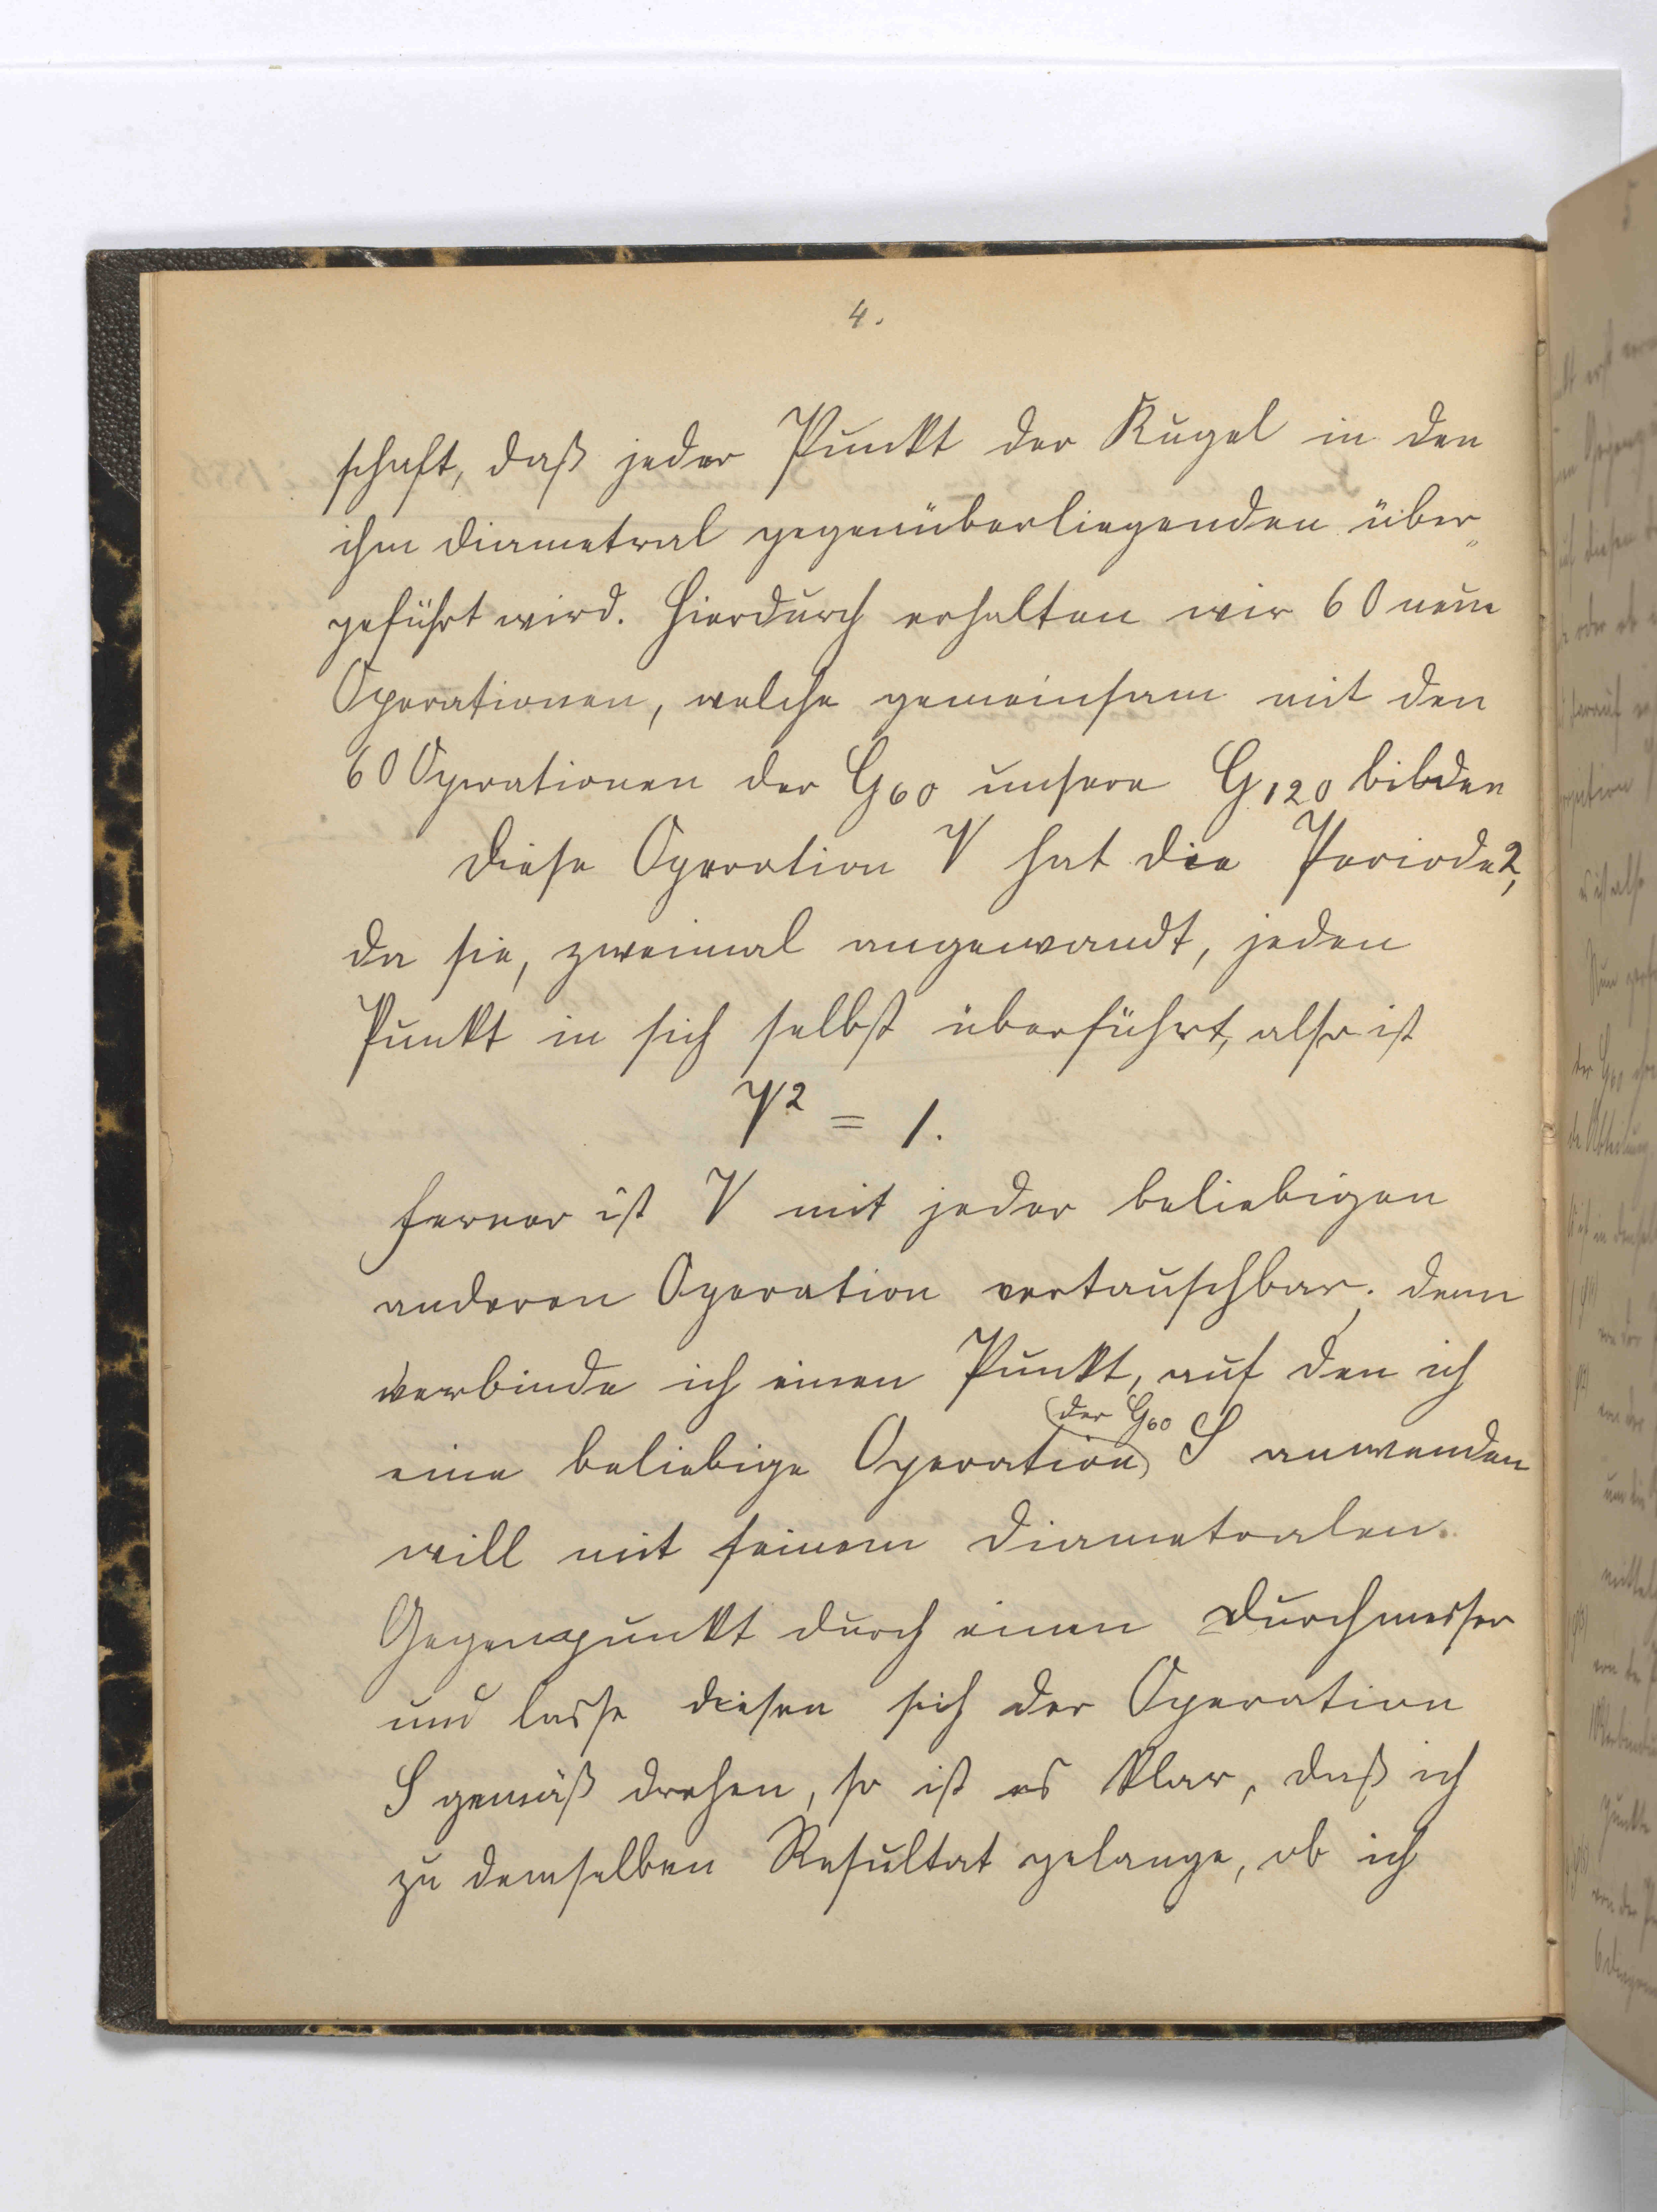 4.
schaft, daß jeder Punkt der Kugel in den
ihm diametral gegenüberliegenden über„
geführt wird. Hierdurch erhalten wir 60 neue
Operationen, welche gemeinsam mit den
60 Operationen der G60 unsere G120 bilden
Diese Operation V hat die Periode 2,
da sie, zweimal angewandt, jeden
Punkt in sich selbst überführt, also ist
V² = 1.
Ferner ist V mit jeder beliebigen
anderen Operation vertauschbar; denn
verbinde ich einen Punkt, auf den ich
der G60
eine beliebige Operation S anwenden
will mit seinem diametralen
Gegenpunkt durch einen Durchmesser
und lasse diesen sich der Operation
S gemäß drehen, so ist es klar, daß ich
zu demselben Resultat gelange, ob ich